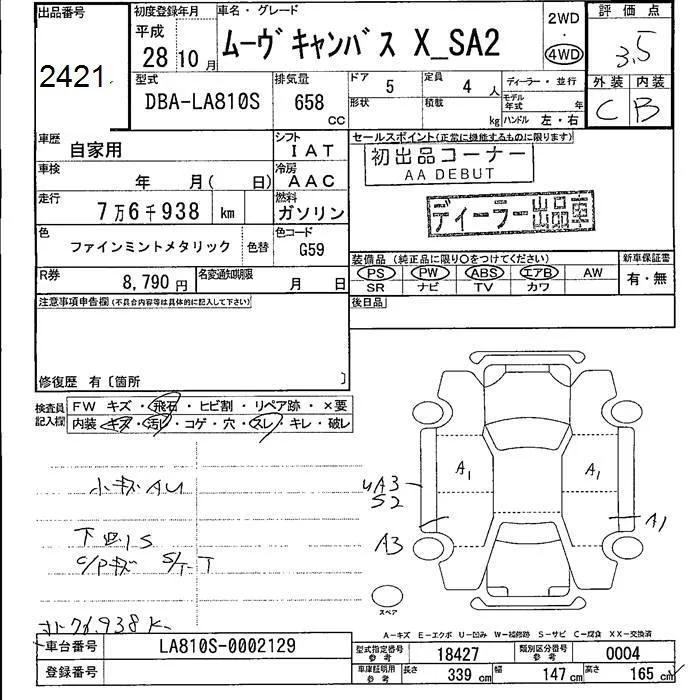 出品番号
2421
初度登録年月
平成
28 10 月
車名・グレード
ムーヴキャンバス X_SA2
2WD
・
4WD
評価点
3.5
外装 内装
C B
型式
DBA-LA810S
排気量
658 cc
ドア 5
定員 4 人
形状
積載 kg
ディーラー・並行
モデル年式 年
ハンドル 左・右
車歴
自家用
シフト
IAT
車検
年 月( 日)
冷房
AAC
走行
7万6千938 km
燃料
ガソリン
色
ファインミントメタリック
色替
色コード
G59
R券
8,790円
名変通知期限
月 日
セールスポイント(正常に機能するものに限ります)
初出品コーナー
AA DEBUT
ディーラー出品車
装備品(純正品に限り○をつけてください)
PS PW ABS エアB AW
SR ナビ TV カワ
新車保証書
有・無
後日品
注意事項申告欄(不具合内容等は具体的に記入して下さい)
修復歴 有〔箇所 〕
検査員記入欄
FW キズ・飛石・ヒビ割・リペア跡・×要
内装・キズ・汚レ・コゲ・穴・スレ・キレ・破レ
小キズAU
下回りS
C/Pキズ
76,938K
A1
A1
UA3
S2
A3
A1
スペア
A-キズ E-エクボ U-凹み W-補修跡 S-サビ C-腐食 XX-交換済
車台番号
LA810S-0002129
登録番号
型式指定番号 参考
18427
類別区分番号 参考
0004
車庫証明用 参考
長さ 339 cm
幅 147 cm
高さ 165 cm